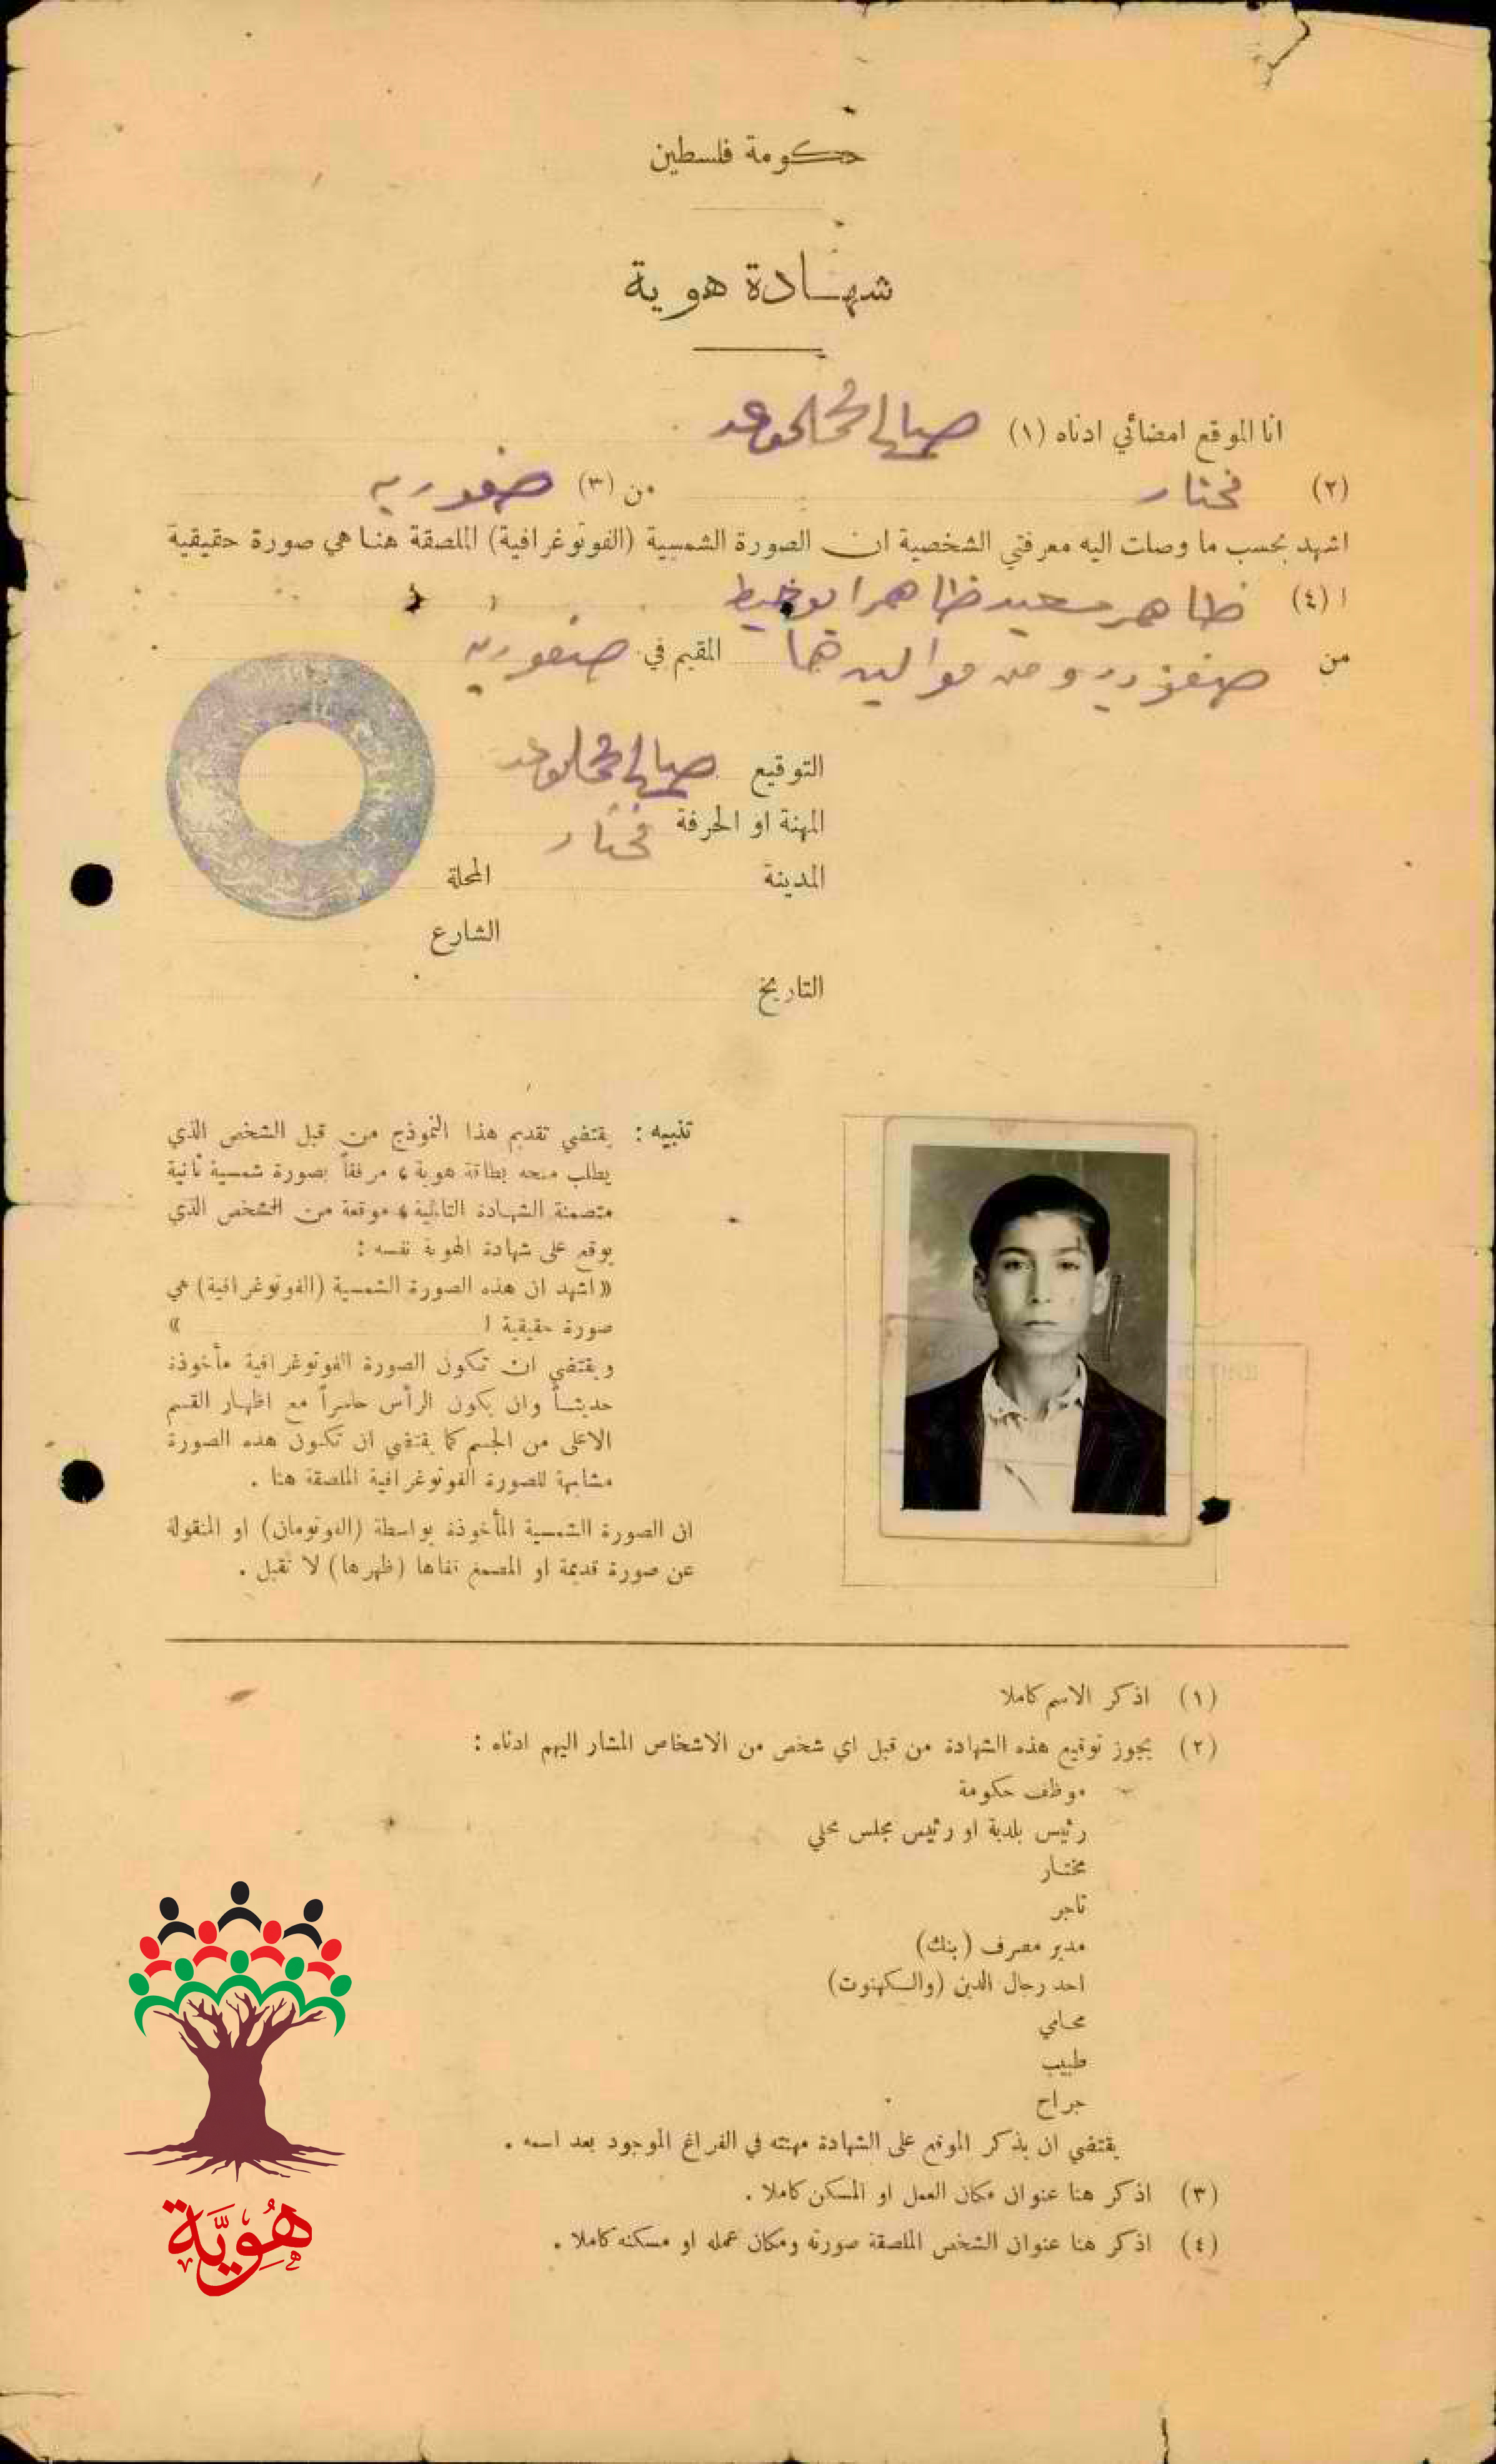 حكومة فلسطين
شهادة هوية
انا الموقع امضائي ادناه (١) صالح محمد
(٢) مختار من (٣) صفوريه
اشهد بحسب ما وصلت اليه معرفتي الشخصية ان الصورة الشمسية (الفوتوغرافية) الملصقة هنا هي صورة حقيقية
ا (٤) ظاهر سعيد ظاهر ابو خيط
من صفوريه ومن مواليدها المقيم في صفوريه
التوقيع صالح محمد
المهنة او الحرفة مختار
المدينة المحلة
الشارع
التاريخ
تنبيه : يقتضي تقديم هذا النموذج من قبل الشخص الذي
يطلب منحه بطاقة هوية ، مرفقاً بصورة شمسية ثانية
متضمنة الشهادة التالية ، موقعة من الشخص الذي
يوقع على شهادة الهوية نفسه :
« اشهد ان هذه الصورة الشمسية (الفوتوغرافية) هي
صورة حقيقية ا »
ويقتضي ان تكون الصورة الفوتوغرافية مأخوذة
حديثاً وان يكون الرأس حاسراً مع اظهار القسم
الاعلى من الجسم كما يقتضي ان تكون هذه الصورة
مشابهة للصورة الفوتوغرافية الملصقة هنا .
ان الصورة الشمسية المأخوذة بواسطة (الفوتومان) او المنقولة
عن صورة قديمة او المصمغ قفاها (ظهرها) لا تقبل .
(١) اذكر الاسم كاملا
(٢) يجوز توقيع هذه الشهادة من قبل اي شخص من الاشخاص المشار اليهم ادناه :
موظف حكومة
رئيس بلدية او رئيس مجلس محلي
مختار
تاجر
مدير مصرف (بنك)
احد رجال الدين (والكهنوت)
محامي
طبيب
جراح
يقتضي ان يذكر الموقع على الشهادة مهنته في الفراغ الموجود بعد اسمه .
(٣) اذكر هنا عنوان مكان العمل او المسكن كاملا .
(٤) اذكر هنا عنوان الشخص الملصقة صورته ومكان عمله او مسكنه كاملا .
هُوِيَّة